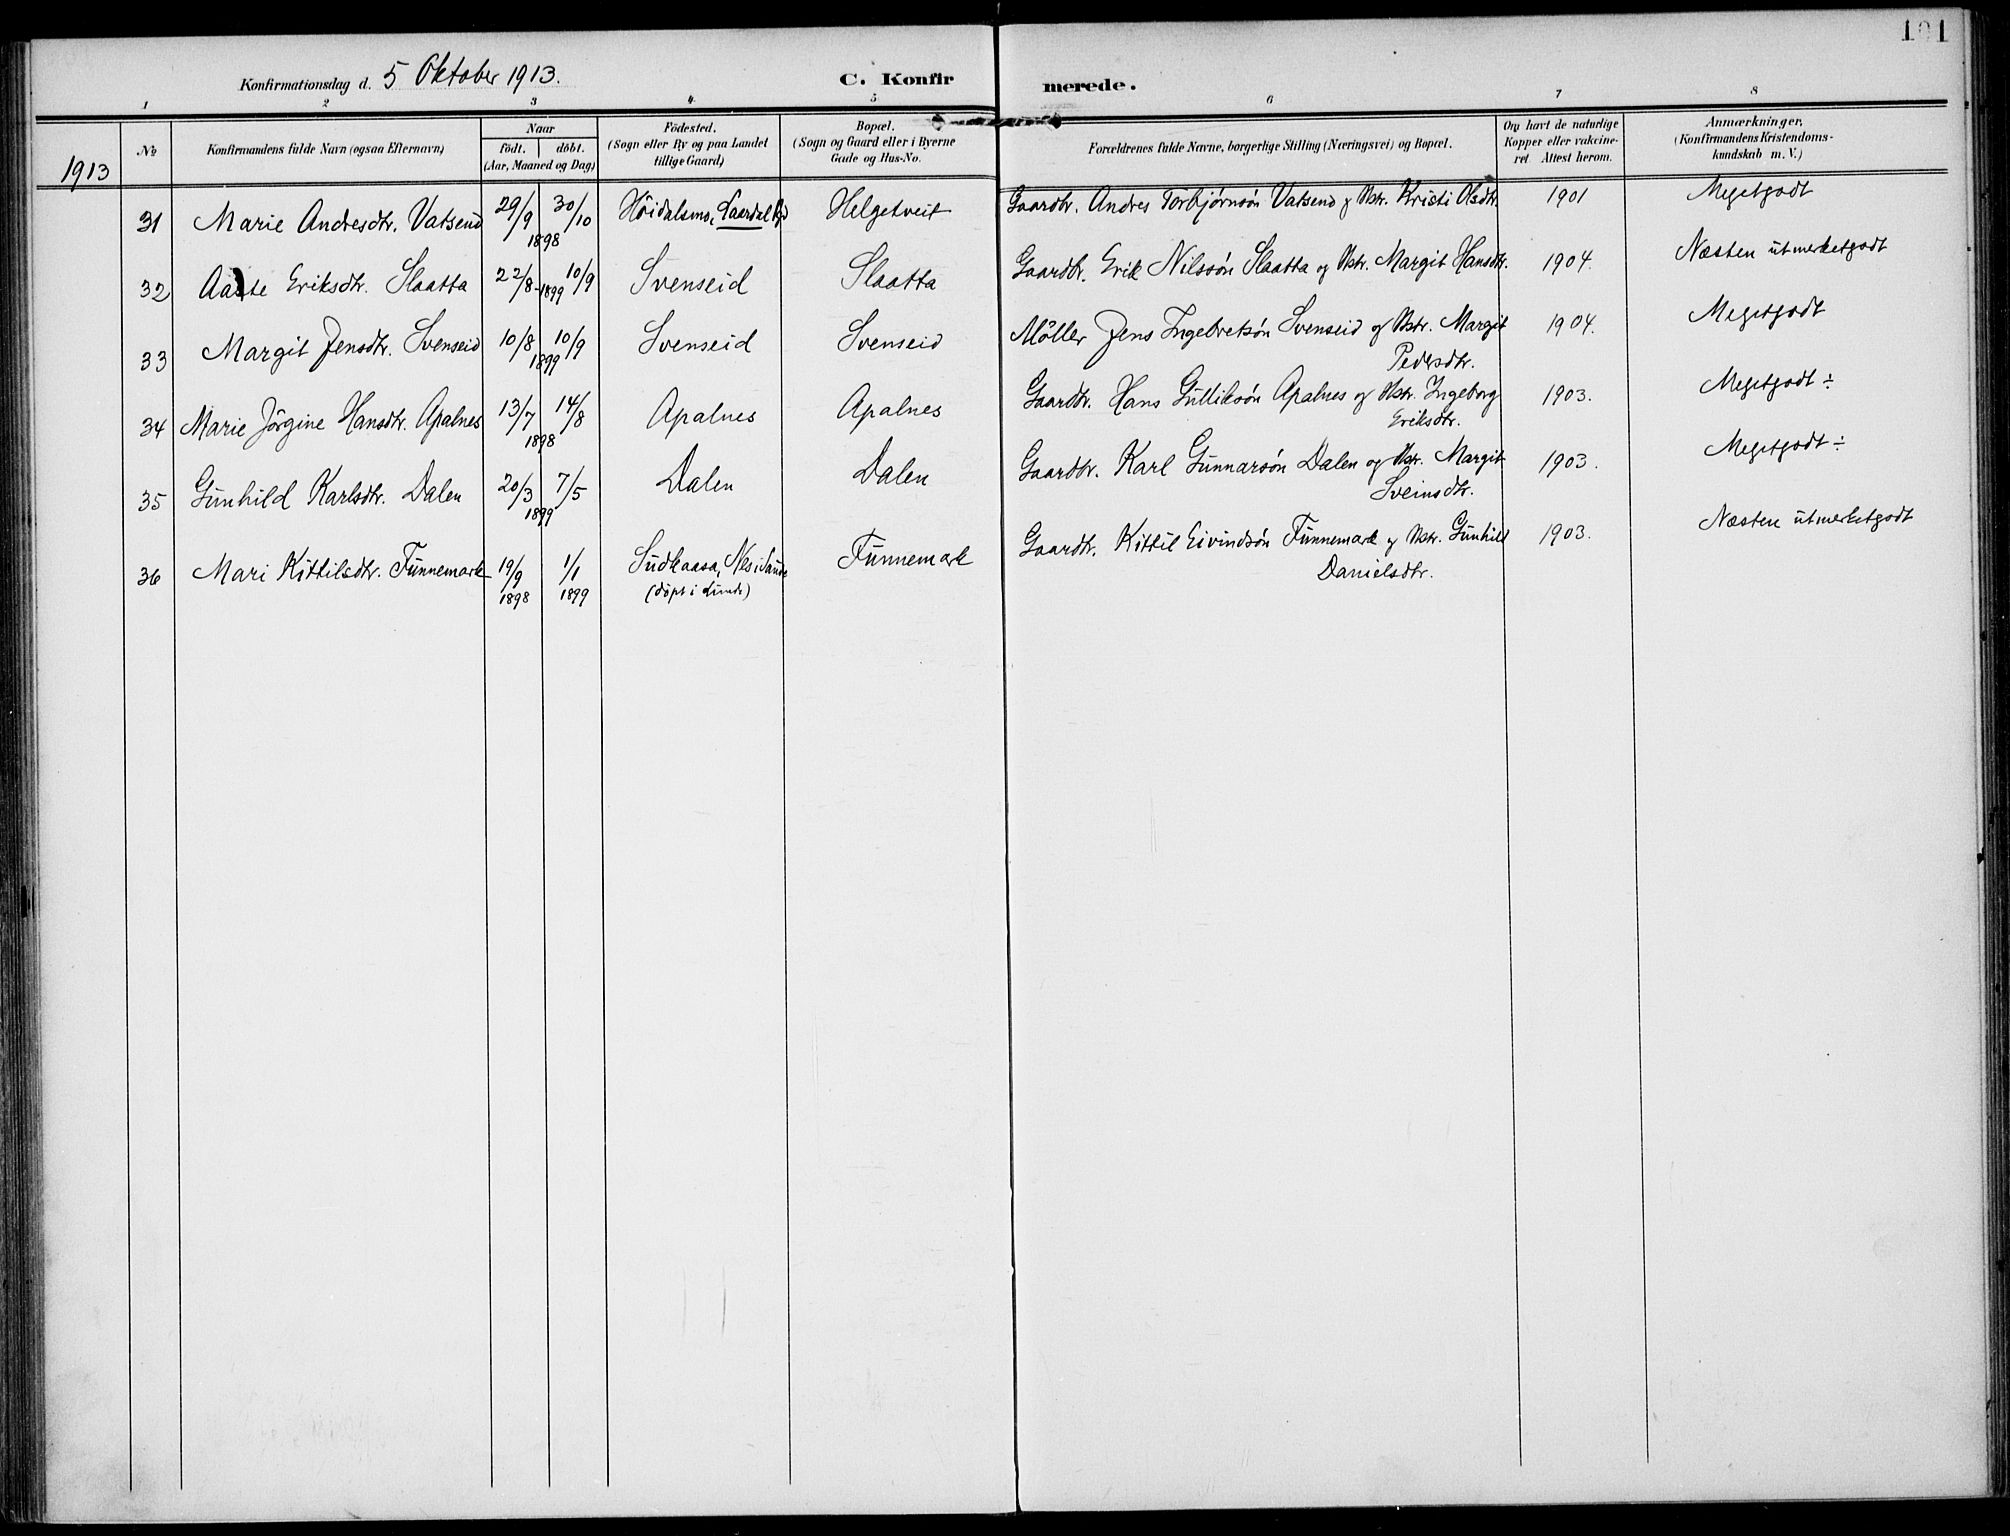 101
Konfirmationsdag d. 5 Oktober 1913. C. Konfirmerede.
1 2 3 4 5 6 7 8
1913
№
Konfirmandens fulde Navn (ogsaa Efternavn)
Naar
født. døbt.
(Aar, Maaned og Dag)
Fødested.
(Sogn eller By og paa Landet
tillige Gaard)
Bopæl.
(Sogn og Gaard eller i Byerne
Gade og Hus-No.
Forældrenes fulde Navne, borgerlige Stilling (Næringsvei) og Bopæl.
Om havt de naturlige
Kopper eller vakcine-
ret Attest herom.
Anmærkninger,
(Konfirmandens Kristendoms-
kundskab m. V.)
31 Marie Andresdtr. Vatsend 29/9 30/10 1898 Höidalsmo, Laardal Helgetveit Gaardbr. Andres Torbjørnsøn Vatsend og Hstr. Kristi Olsdtr. 1901 Megetgodt
32 Aaste Eriksdtr. Slaatta 22/8 10/9 1899 Svenseid Slaatta Gaardbr. Erik Nilssøn Slaatta og Hstr. Margit Hansdtr. 1904. Næsten utmerketgodt
33 Margit Jensdtr. Svenseid 10/8 10/9 1899 Svenseid Svenseid Møller Jens Ingebretsøn Svenseid og Hstr. Margit 1904. Megetgodt
Pedersdtr.
34 Marie Jörgine Hansdtr. Apalnes 13/7 14/8 1898 Apalnes Apalnes Gaardbr. Hans Gulliksøn Apalnes og Hstr. Ingeborg 1903. Megetgodt ÷
Eriksdtr.
35 Gunhild Karlsdtr. Dalen 20/3 7/5 1899 Dalen Dalen Gaardbr. Karl Gunnarsøn Dalen og Hstr. Margit 1903. Megetgodt ÷
Sveinsdtr.
36 Mari Kittilsdtr. Funnemark 19/9 1898 1/1 1899 Sudkaasa, Nes i Saude Funnemark Gaardbr. Kittil Eivindsøn Funnemark og Hstr. Gunhild 1903. Næsten utmerketgodt
(döpt i Lunde) Danielsdtr.